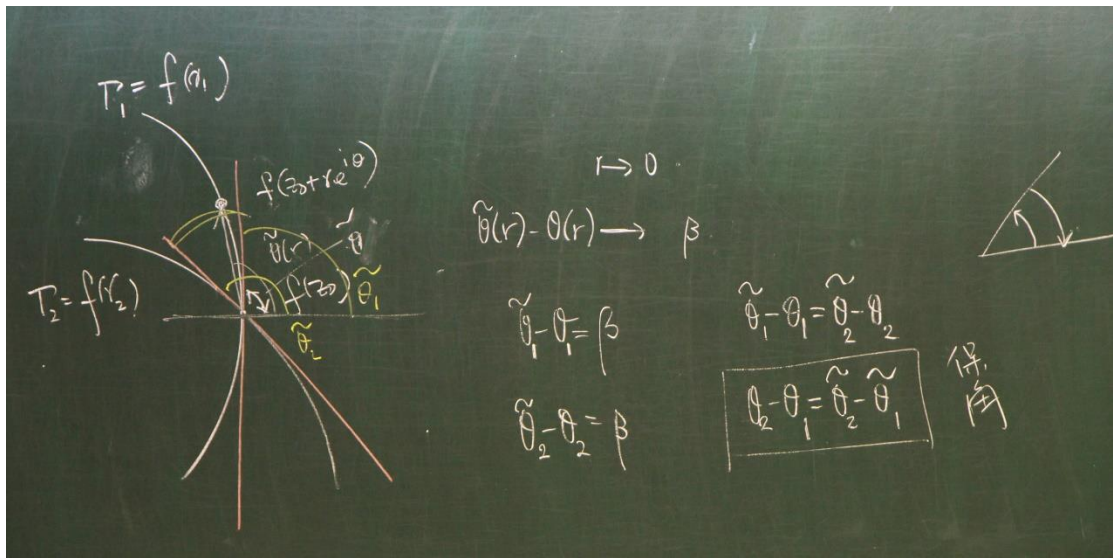 Γ₁ = f(γ₁)
f(z₀+re^{iθ})
θ̃(r)
θ̃
f(z₀)
θ̃₁
Γ₂ = f(γ₂)
θ̃₂
r → 0
θ̃(r) - θ(r) → β
θ̃₁ - θ₁ = β
θ̃₂ - θ₂ = β
θ̃₁ - θ₁ = θ̃₂ - θ₂
θ₂ - θ₁ = θ̃₂ - θ̃₁
保
角